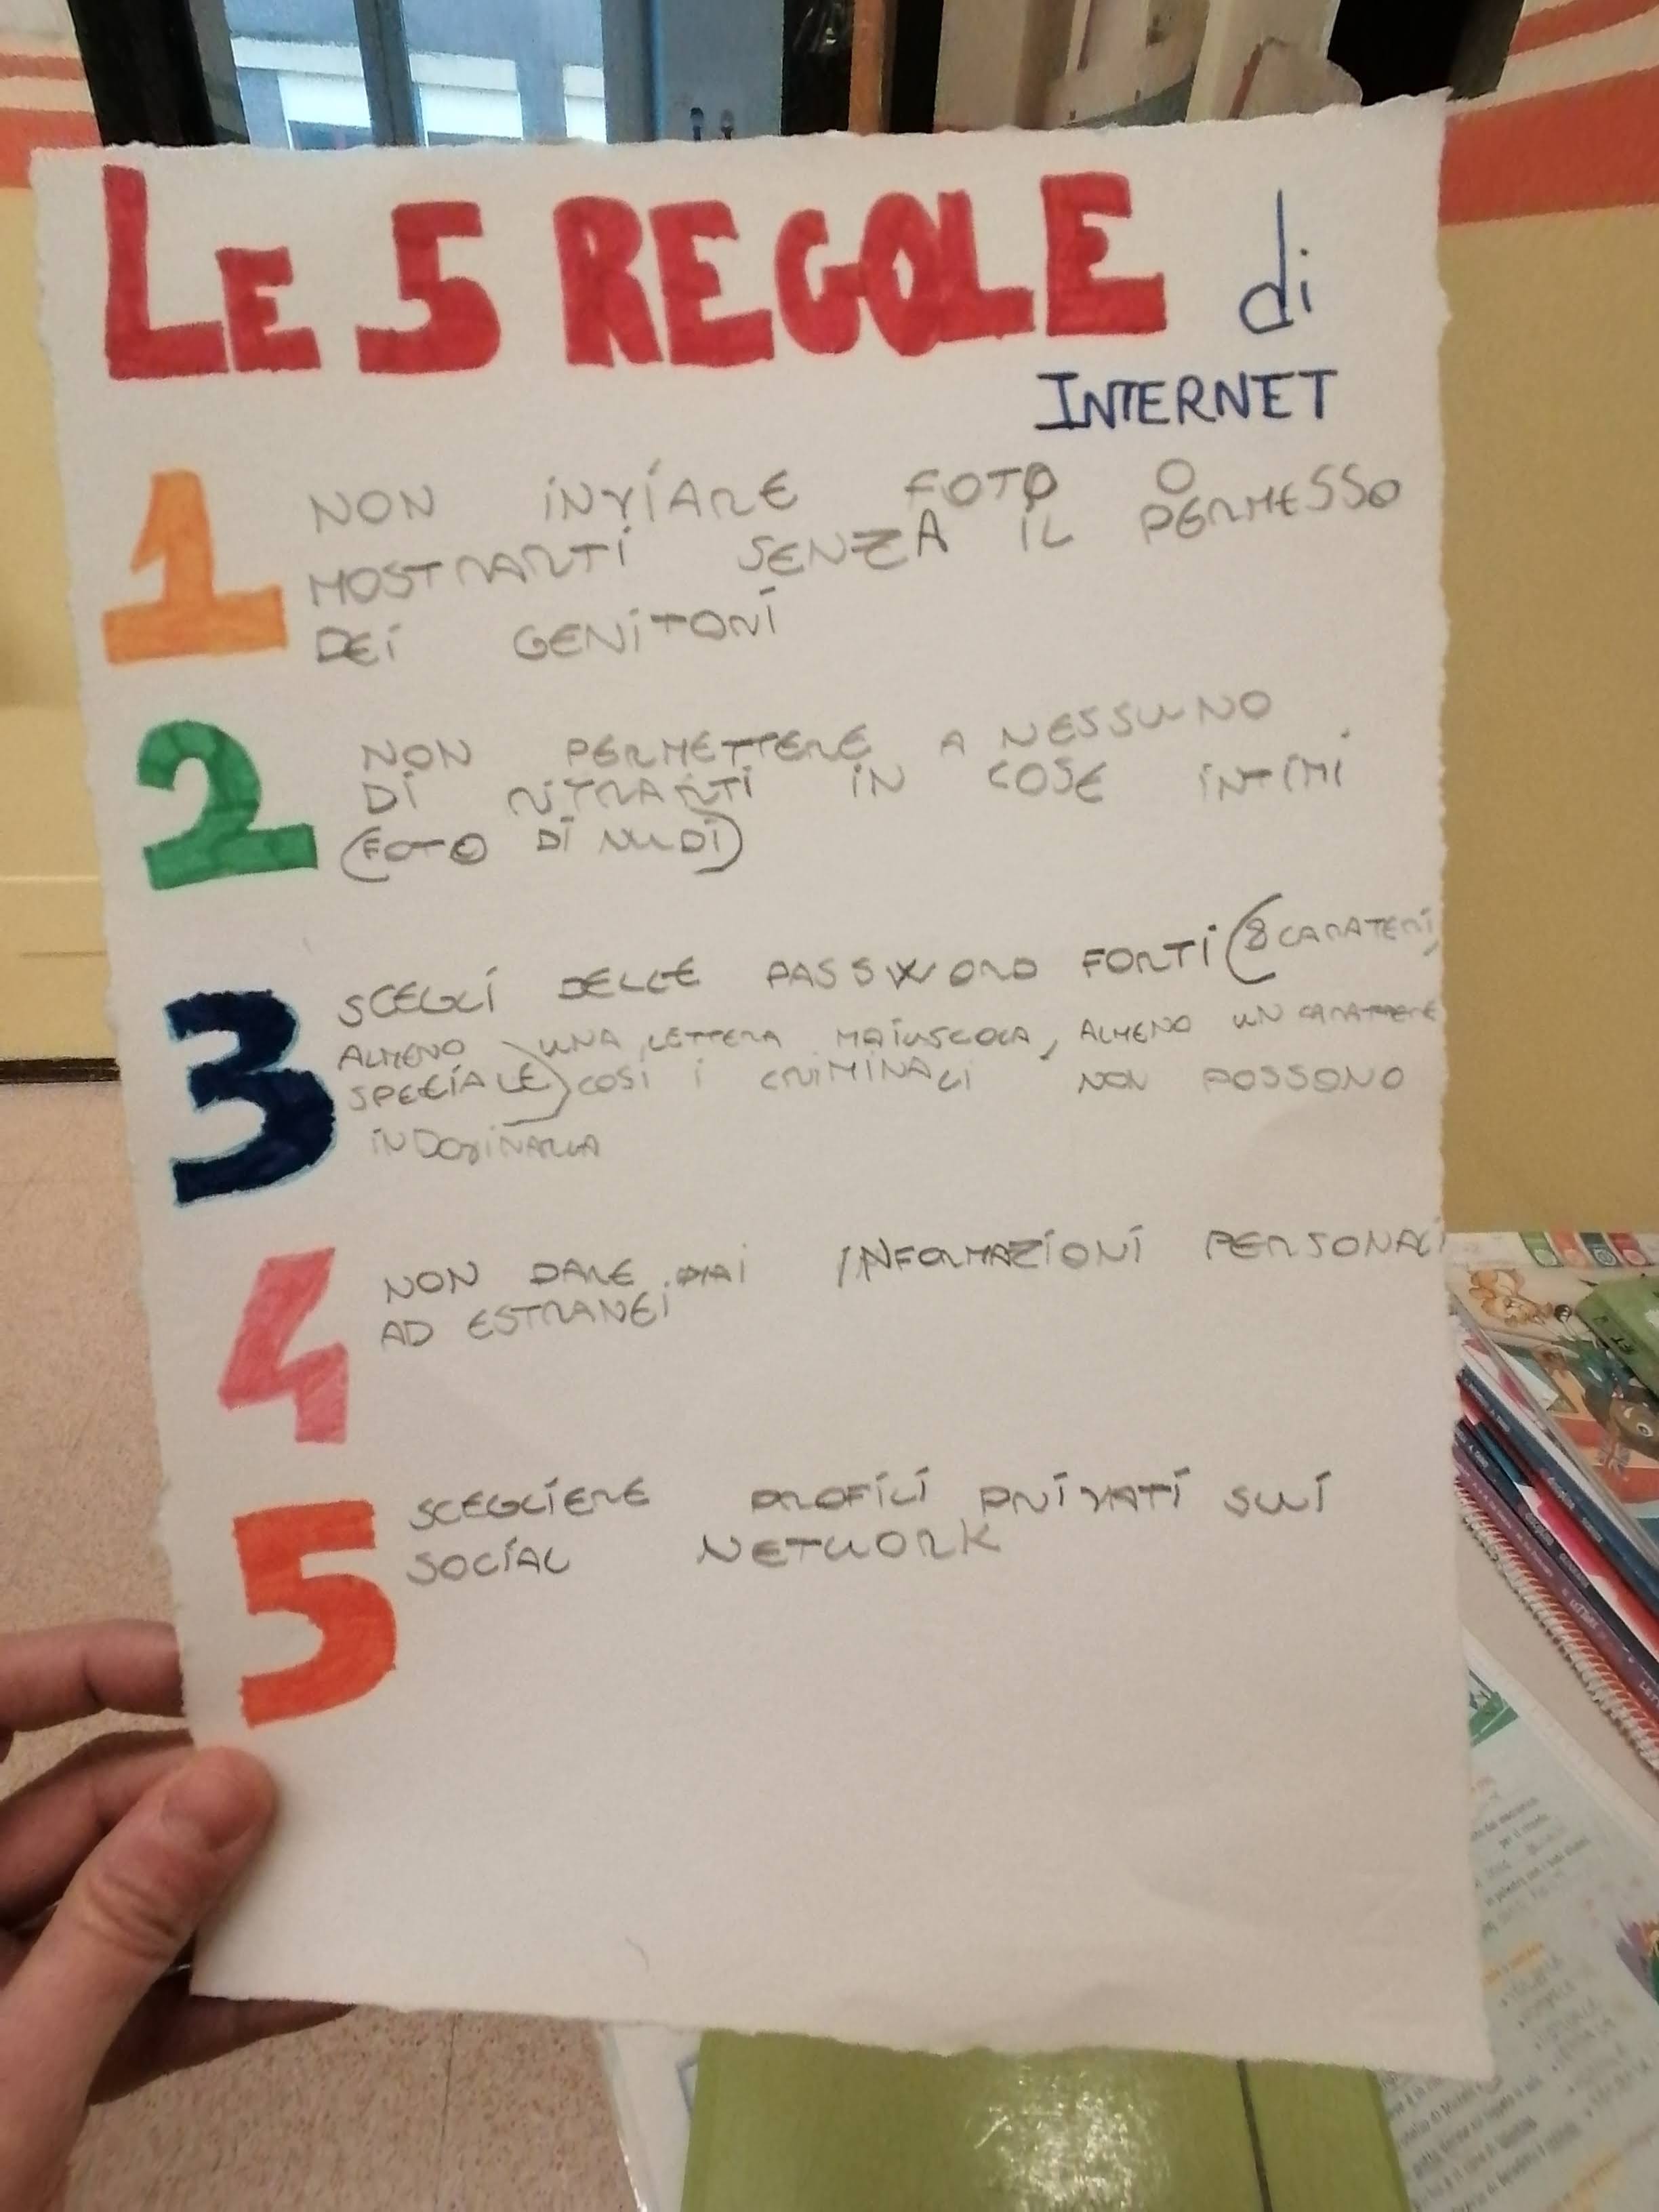 LE 5 REGOLE di
INTERNET
1 NON INVIARE FOTO O
MOSTRARTI SENZA IL PERMESSO
DEI GENITORI
2 NON PERMETTERE A NESSUNO
DI RITRARTI IN COSE INTIMI
(FOTO DI NUDI)
3 SCEGLI DELLE PASSWORD FORTI (8 CARATERI,
ALMENO UNA LETTERA MAIUSCOLA, ALMENO UN CARATTERE
SPECIALE) COSI I CRIMINALI NON POSSONO
INDOVINARLA
4 NON DARE MAI INFORMAZIONI PERSONALI
AD ESTRANEI
5 SCEGLIERE PROFILI PRIVATI SUI
SOCIAL NETWORK